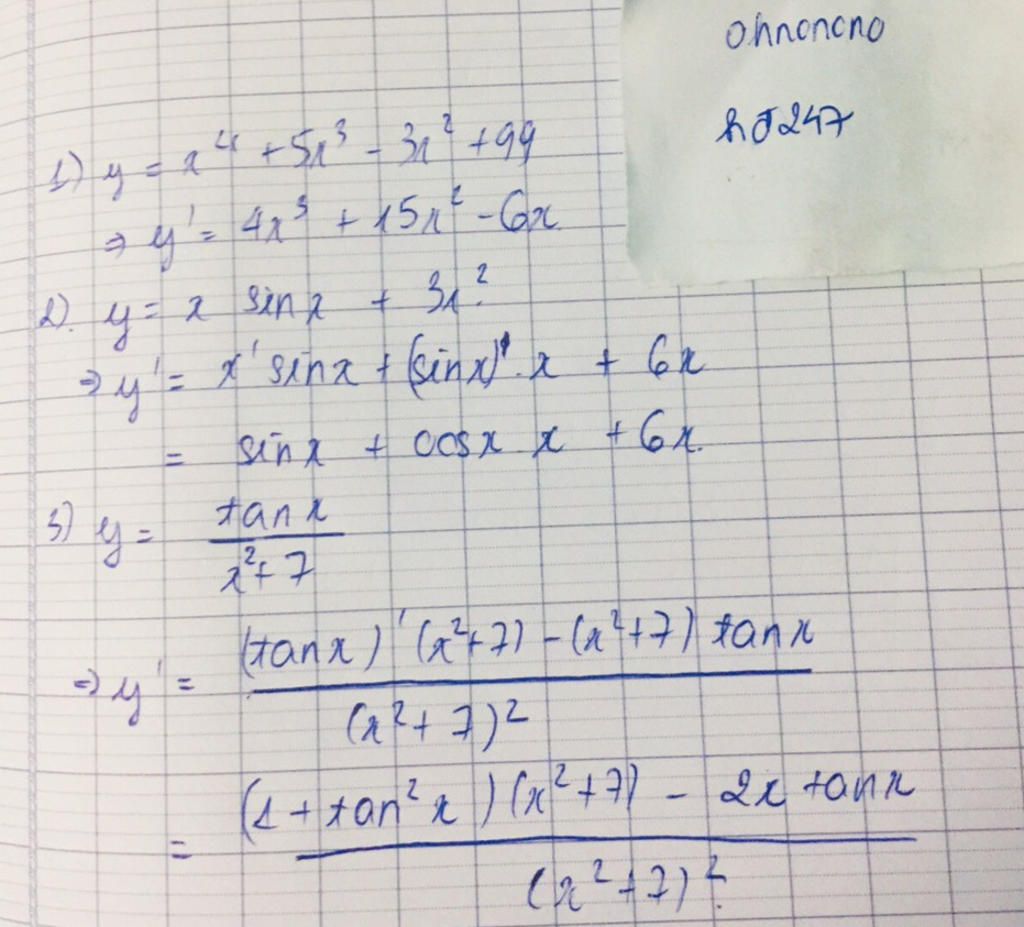 ohnonono
hđ247
1) y = x⁴ + 5x³ - 3x² + 99
⇒ y' = 4x³ + 15x² - 6x
2). y = x sinx + 3x².
⇒ y' = x' sinx + (sinx)'. x + 6x
= sinx + cosx x + 6x.
3) y = tanx / x²+7
⇒ y' = (tanx)'(x²+7) - (x²+7) tanx / (x²+7)²
= (1 + tan²x)(x²+7) - 2x tanx / (x²+7)².